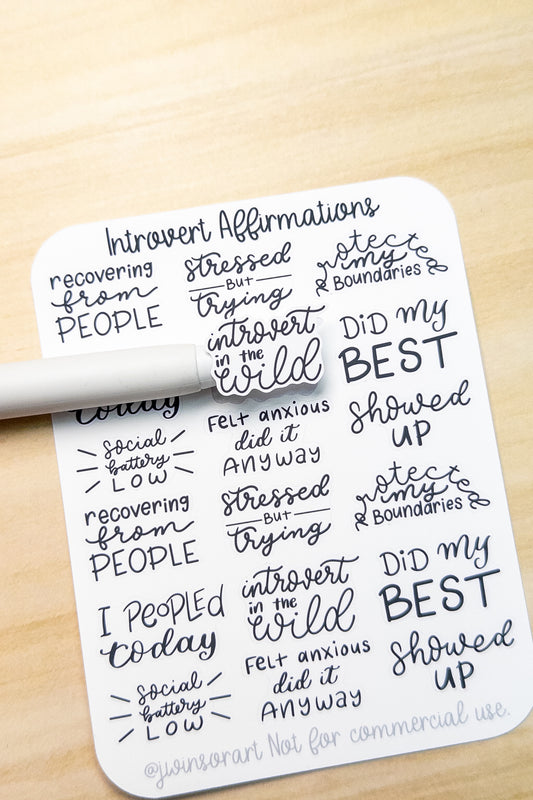 Introvert Affirmations
recovering
from
PEOPLE
stressed
BUT
trying
Protected
my
Boundaries
introvert
in the
wild
DiD my
BEST
today
social
battery
LOW
Felt anxious
did it
ANyway
showed
UP
recovering
from
PEOPLE
stressed
BUT
trying
Protected
my
Boundaries
I PeoPLEd
today
introvert
in the
wild
DiD my
BEST
social
battery
LOW
Felt anxious
did it
ANyway
showed
UP
@jwinsorart Not for commercial use.